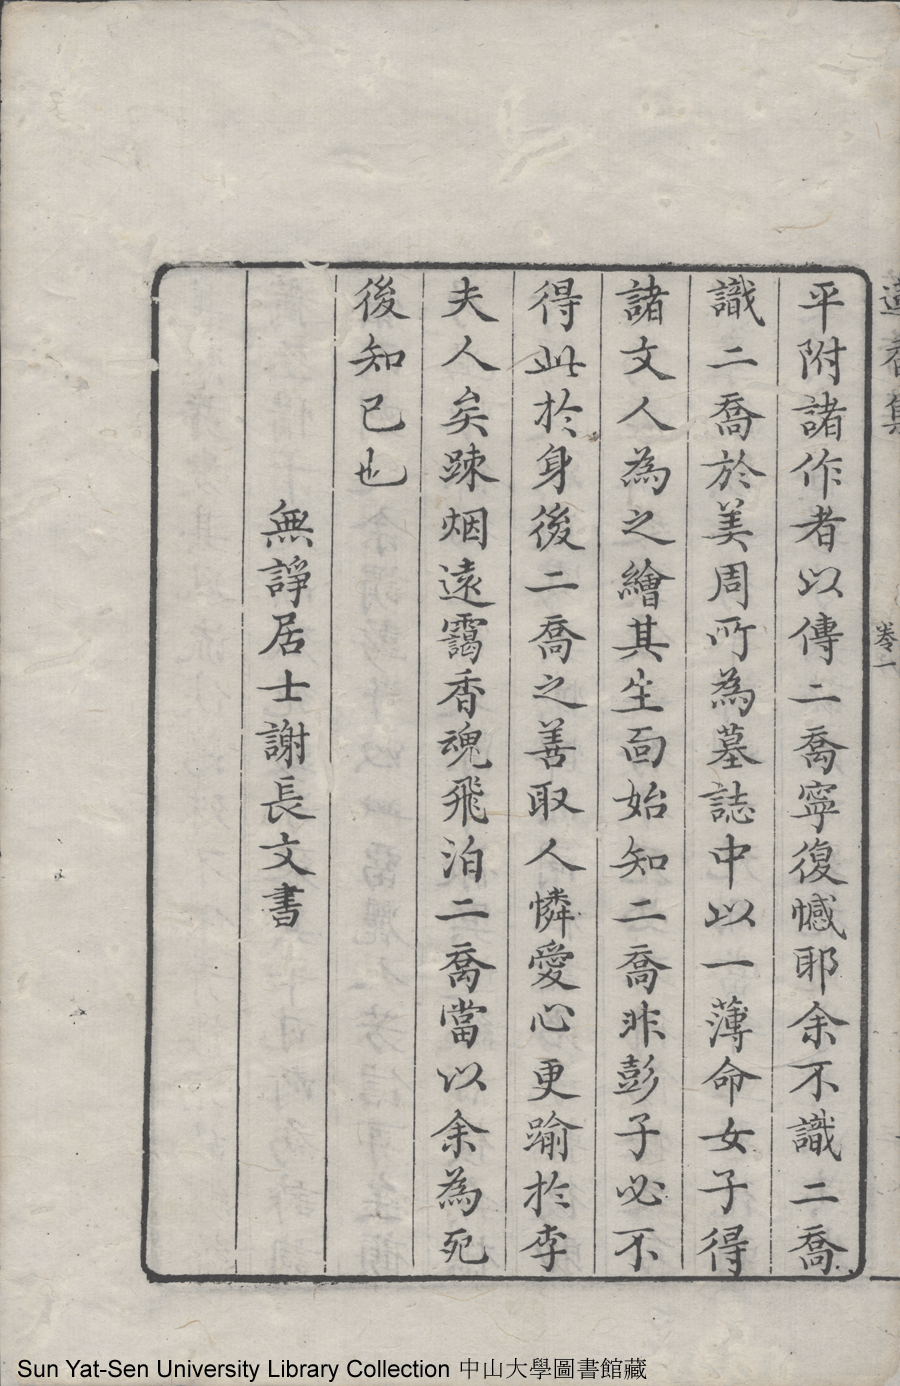 蓮香集
卷一
平附諸作者以傳二喬寧復憾耶余不識二喬
識二喬於美周所為墓誌中以一薄命女子得
諸文人為之繪其生面始知二喬非彭子必不
得此於身後二喬之善取人憐愛心更踰於李
夫人矣踈烟遠靄香魂飛泊二喬當以余為死
後知已也
無諍居士謝長文書
Sun Yat-Sen University Library Collection 中山大學圖書館藏